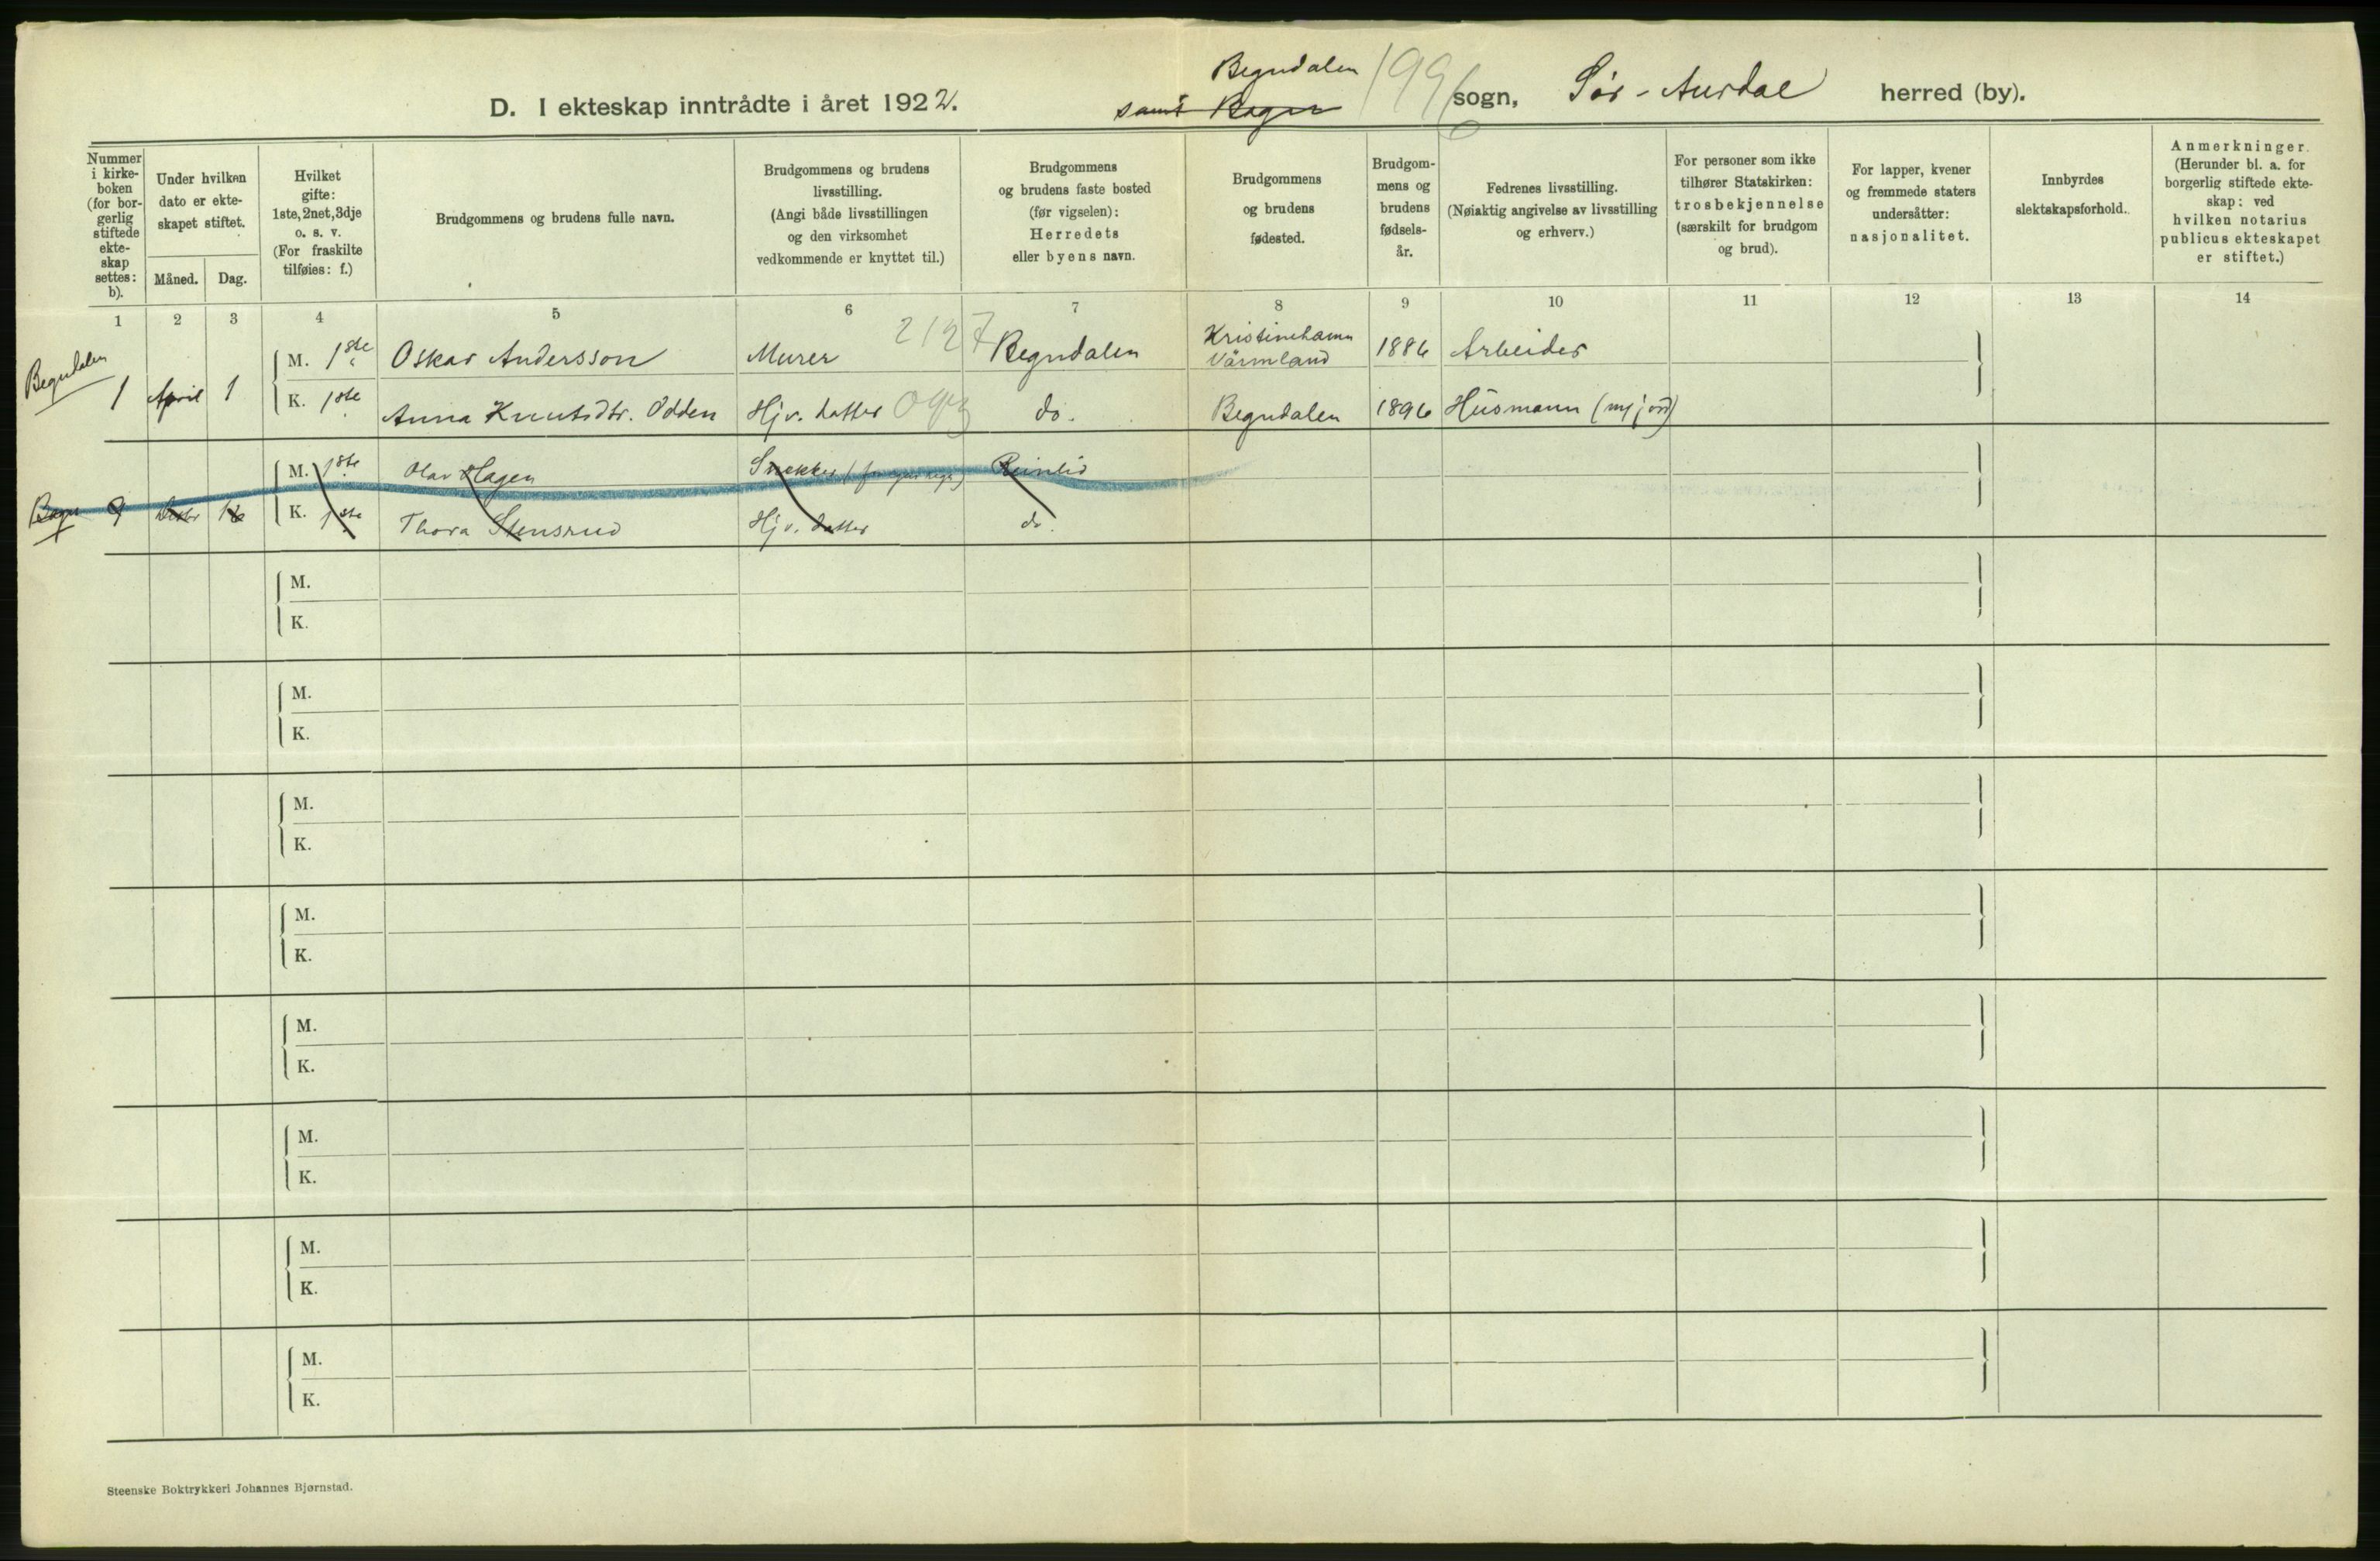 D. I ekteskap inntrådte i året 1922.
Begndalen
samt Bagn
sogn, Sør-Aurdal herred (by).
Nummer i kirkeboken (for borgerlig stiftede ekteskap settes: b).
Under hvilken dato er ekteskapet stiftet.
Måned. Dag.
Hvilket gifte: 1ste, 2net, 3dje o. s. v. (For fraskilte tilføies: f.)
Brudgommens og brudens fulle navn.
Brudgommens og brudens livsstilling. (Angi både livsstillingen og den virksomhet vedkommende er knyttet til.)
Brudgommens og brudens faste bosted (før vigselen): Herredets eller byens navn.
Brudgommens og brudens fødested.
Brudgommens og brudens fødselsår.
Fedrenes livsstilling. (Nøiaktig angivelse av livsstilling og erhverv.)
For personer som ikke tilhører Statskirken: trosbekjennelse (særskilt for brudgom og brud).
For lapper, kvener og fremmede staters undersåtter: nasjonalitet.
Innbyrdes slektskapsforhold.
Anmerkninger. (Herunder bl. a. for borgerlig stiftede ekteskap: ved hvilken notarius publicus ekteskapet er stiftet.)
1 2 3 4 5 6 7 8 9 10 11 12 13 14
Begndalen
1 April 1
M. 1ste Oskar Andersson Murer 2127 Begndalen Kristinehamn Värmland 1886 Arbeider
K. 1ste Anna Knutsdtr. Odden Hjv. datter do. Begndalen 1896 Husmann (m/jord)
Bagn 9
M. 1ste Olav Hagen Snekker Reinlid
K. 1ste Thora Stensrud Hjv. datter do.
M.
K.
M.
K.
M.
K.
M.
K.
M.
K.
M.
K.
M.
K.
M.
K.
Steenske Boktrykkeri Johannes Bjørnstad.